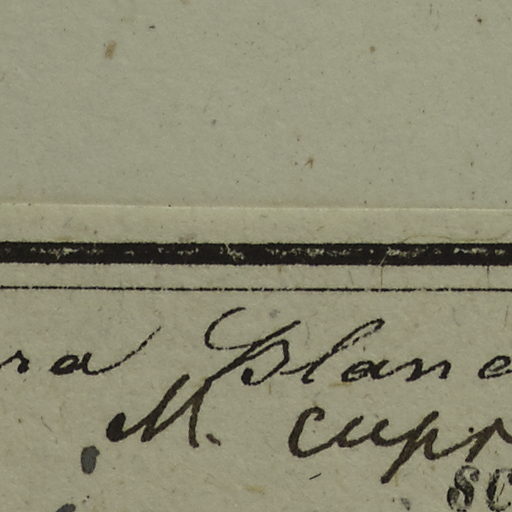 ra Blanc
M. cupr
SC